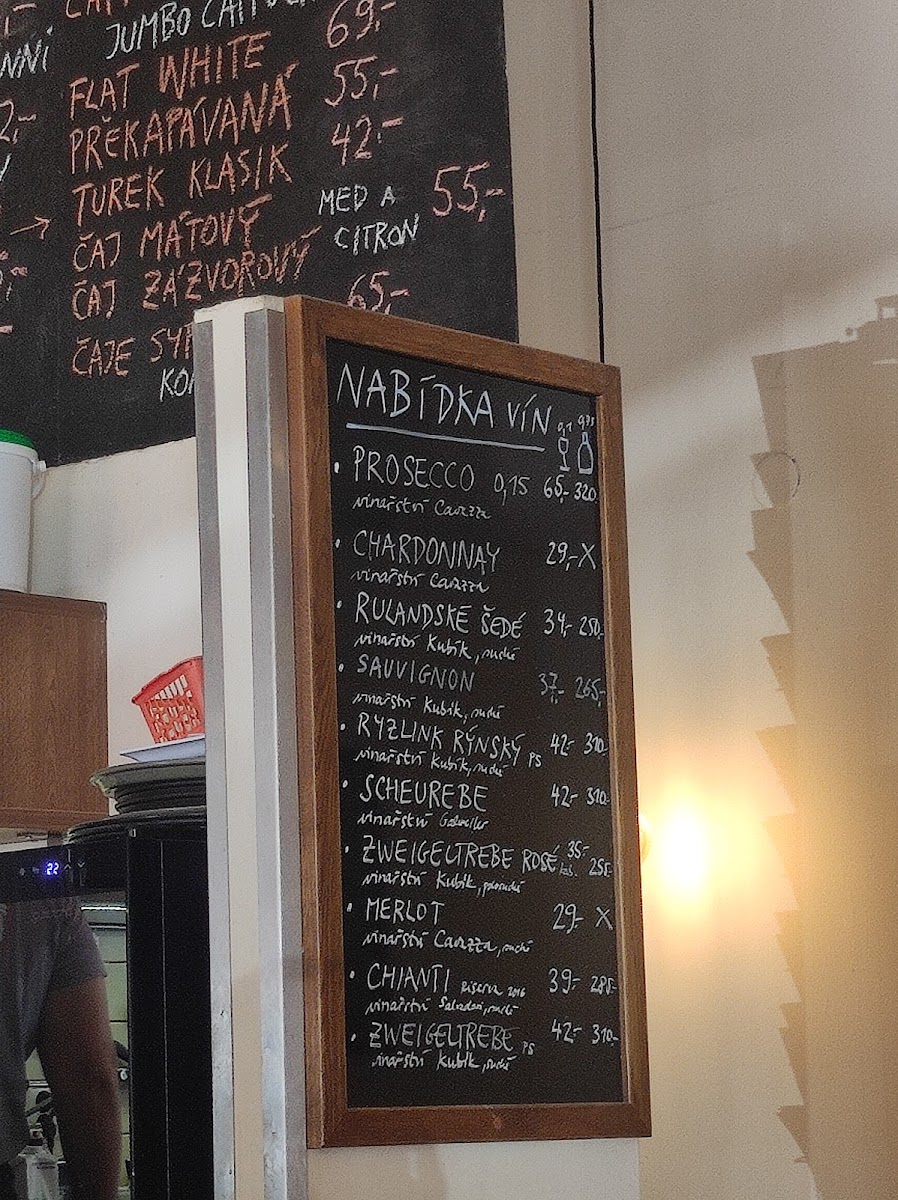 JUMBO
69,-
FLAT WHITE 55,-
PŘEKAPÁVANÁ 42,-
TUREK KLASIK
ČAJ MÁTOVÝ MED A CITRON 55,-
ČAJ ZÁZVOROVÝ
65,-
ČAJE
NABÍDKA VÍN
0,1 0,75
• PROSECCO 0,15 65,- 320
vinařství Cavazza
• CHARDONNAY 29,- X
vinařství Cavazza
• RULANDSKÉ ŠEDÉ 34,- 250,-
vinařství Kubík, suché
• SAUVIGNON 37,- 265,-
vinařství Kubík, suché
• RYZLINK RÝNSKÝ PS 42,- 310,-
vinařství Kubík, suché
• SCHEUREBE 42,- 310,-
vinařství
• ZWEIGELTREBE ROSÉ 35,- 255,-
vinařství Kubík, polosuché
• MERLOT 29,- X
vinařství Cavazza, suché
• CHIANTI Riserva 2016 39,- 285,-
vinařství suché
• ZWEIGELTREBE PS 42,- 310,-
vinařství Kubík, suché
22